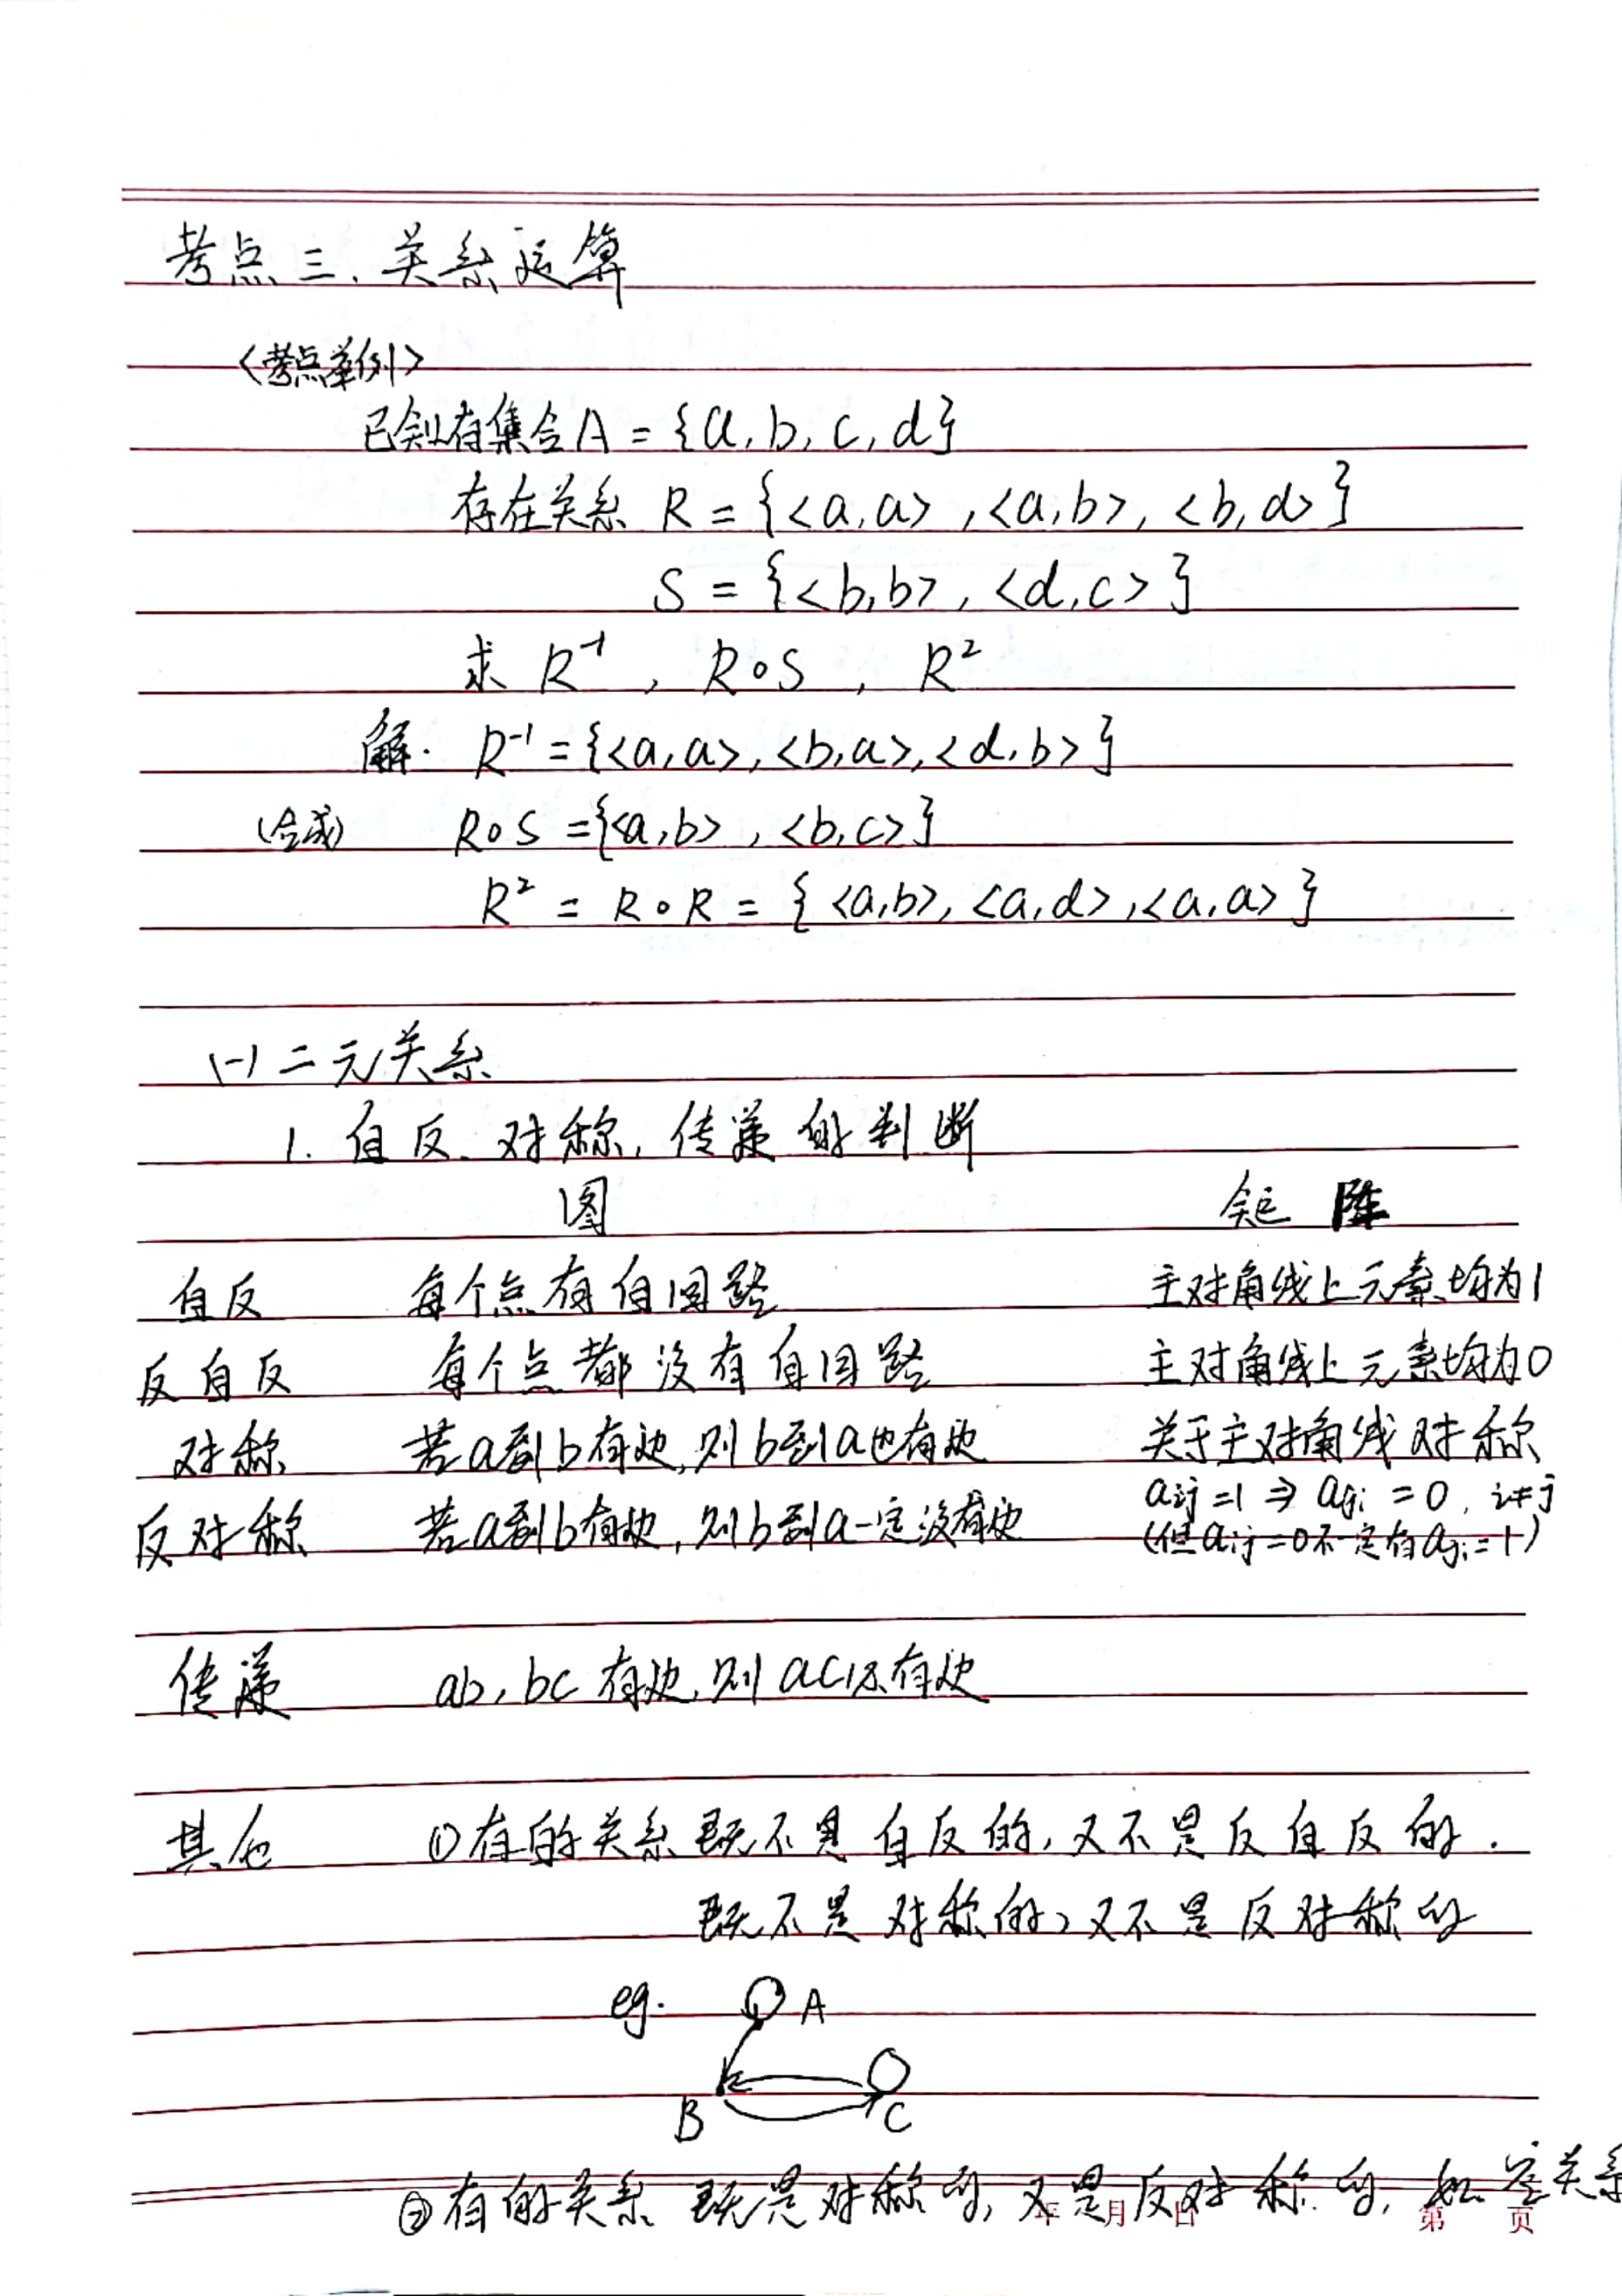 考点三、关系运算
<考点举例>
已知有集合A = {a, b, c, d}
存在关系 R = {<a,a>, <a,b>, <b,d>}
S = {<b,b>, <d,c>}
求 R⁻¹ , R∘S , R²
解: R⁻¹ = {<a,a>, <b,a>, <d,b>}
(合成) R∘S = {<a,b>, <b,c>}
R² = R∘R = {<a,b>, <a,d>, <a,a>}
(一) 二元关系
1. 自反、对称, 传递的判断
图 矩阵
自反 每个点有自回路 主对角线上元素均为1
反自反 每个点都没有自回路 主对角线上元素均为0
对称 若a到b有边, 则b到a也有边 关于主对角线对称
反对称 若a到b有边, 则b到a一定没有边 aij=1 ⇒ aji=0, i≠j
(但aij=0不一定有aji=1)
传递 ab, bc 有边, 则 ac必有边
其他 ①有的关系既不是自反的, 又不是反自反的.
既不是对称的, 又不是反对称的
eg. A
B C
②有的关系既是对称的, 又是反对称的, 如空关系
年 月 日 第 页